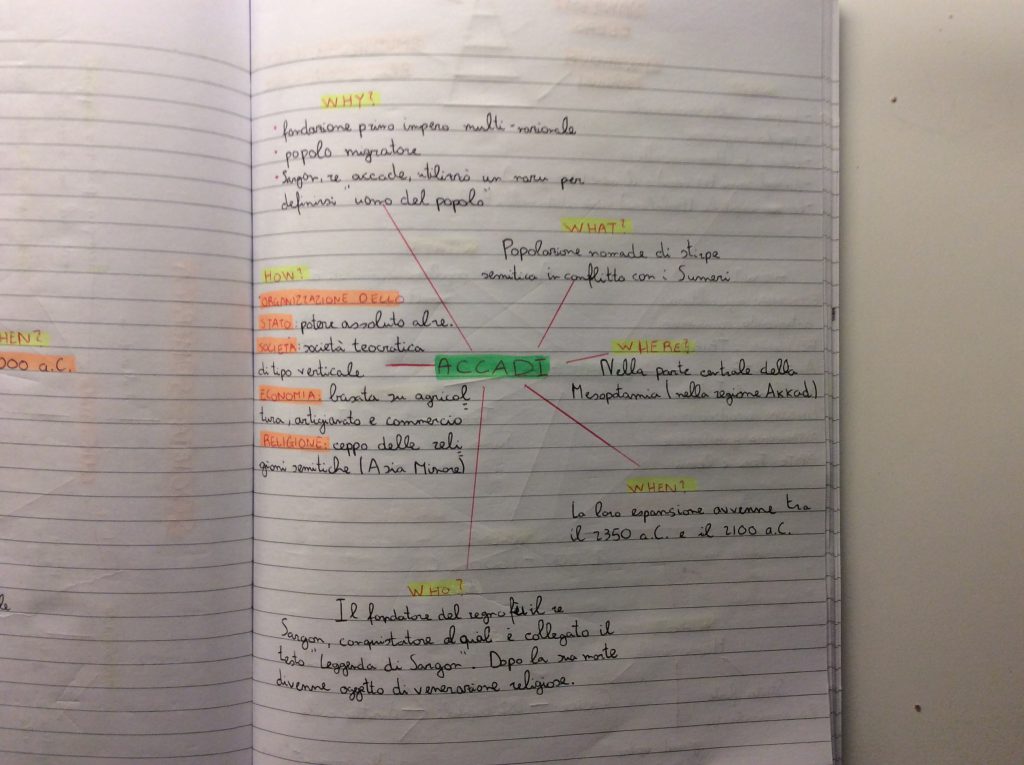 WHY?
• fondazione primo impero multi-nazionale
• popolo migratore
• Sargon, re accade, utilizzò un naru per
definirsi "uomo del popolo"
WHAT?
Popolazione nomade di stirpe
semitica in conflitto con i Sumeri
HOW?
ORGANIZZAZIONE DELLO
STATO: potere assoluto al re.
SOCIETÀ: società teocratica
di tipo verticale
ECONOMIA: basata su agricol
tura, artigianato e commercio
RELIGIONE: ceppo delle reli
gioni semitiche (Asia Minore)
ACCADI
WHERE?
Nella parte centrale della
Mesopotamia (nella regione Akkad)
WHEN?
La loro espansione avvenne tra
il 2350 a.C. e il 2100 a.C.
WHO?
Il fondatore del regno fu il re
Sargon, conquistatore al qual è collegato il
testo "Leggenda di Sargon". Dopo la sua morte
divenne oggetto di venerazione religiose.
HEN?
000 a.C.